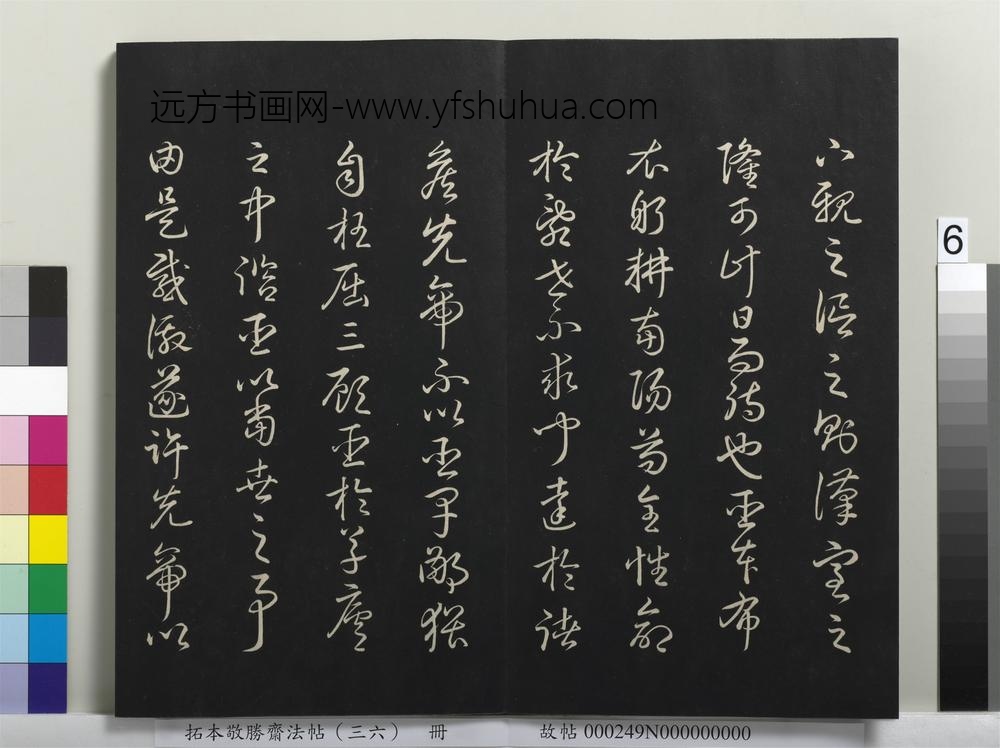 远方书画网-www.yfshuhua.com
下親之信之則漢室之
隆可計日而待也臣本布
衣躬耕南陽苟全性命
於亂世不求聞達於諸
侯先帝不以臣卑鄙猥
自枉屈三顧臣於草廬
之中諮臣以當世之事
由是感激遂許先帝以
6
拓本敬勝齋法帖(三六) 冊
故帖 000249N000000000